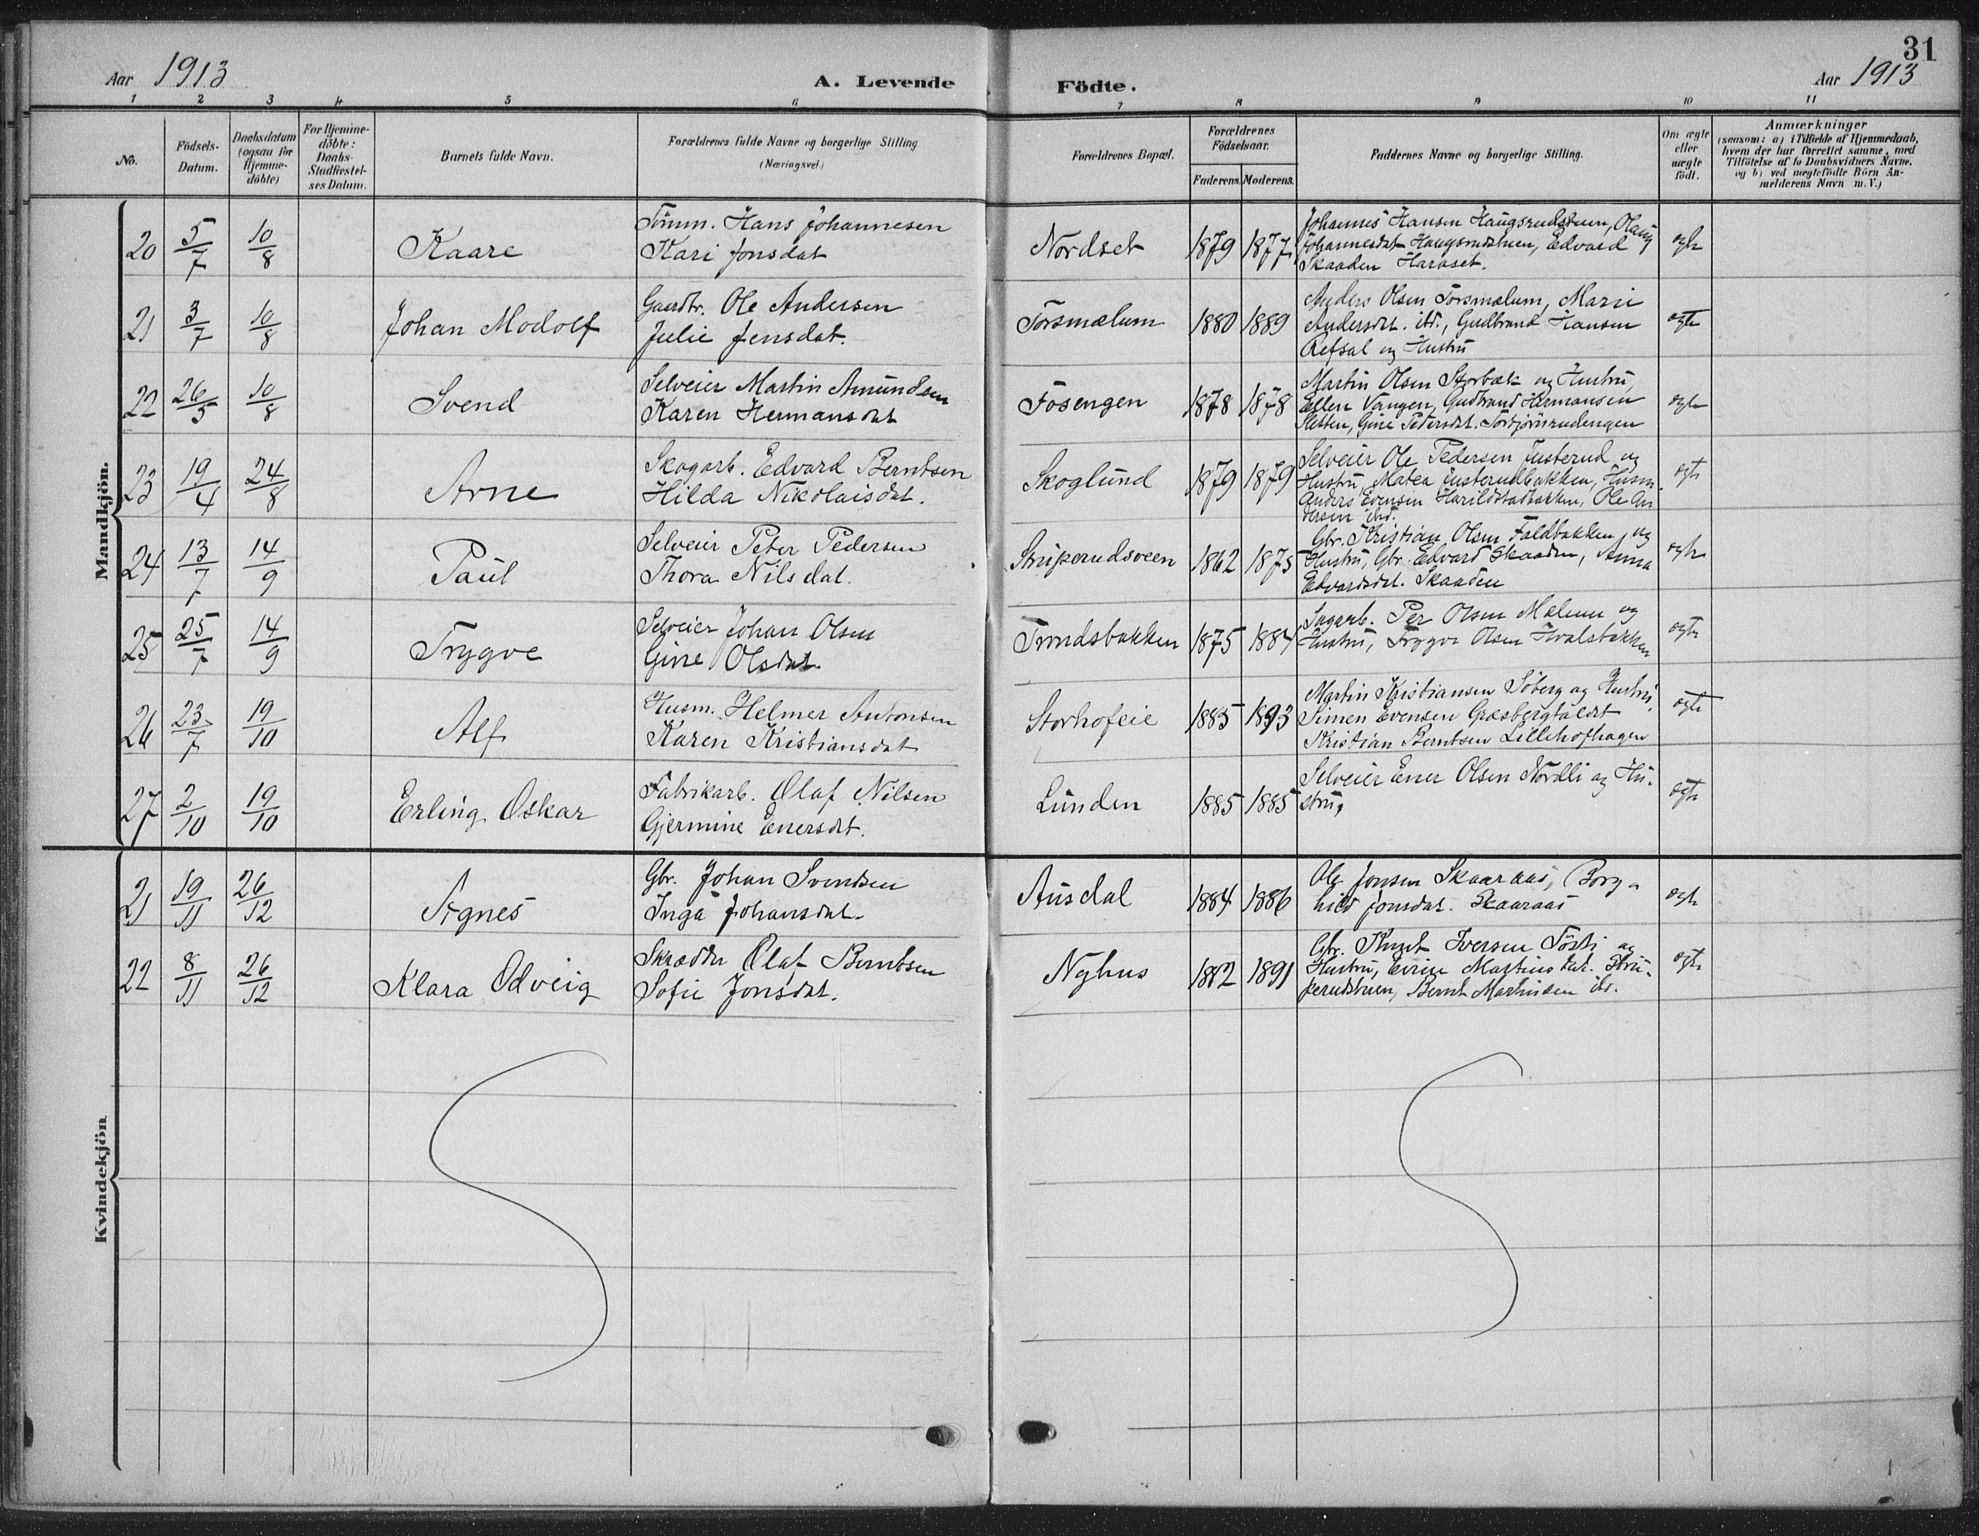 31
Aar 1913 A. Levende Födte. Aar 1913
1 2 3 4 5 6 7 8 9 10 11
No.
Födsels-
Datum.
Daabsdatum
(ogsaa för
Hjemme-
döbte)
For Hjemme-
döbte:
Daabs-
Stadfæstel-
ses Datum.
Barnets fulde Navn.
Forældrenes fulde Navne og borgerlige Stilling
(Næringsvei.)
Forældrenes Bopæl.
Forældrenes
Födselsaar.
Faderens. Moderens.
Faddernes Navne og borgerlige Stilling.
Om ægte
eller
uægte
födt.
Anmærkninger
(saasom: a) i Tilfælde af Hjemmedaab,
hvem der har forrettet samme, med
Tilföielse af to Daabsvidners Navne,
og b) ved uægtefödte Börn An-
melderens Navn m. V.)
Mandkjön.
20 5/7 10/8 Kaare
Tömm. Hans Johannesen
Kari Jonsdat
Nordset 1879 1877
Johannes Hansen Haugsrudstuen, Olaug
Johannesdat Haugsrudstuen, Edvard
Skaaden Haraset.
ægte
21 3/7 10/8 Johan Modolf
Gaardbr. Ole Andersen
Julie Jensdat.
Torsmælum 1880 1889
Anders Olsen Torsmælum, Marie
Andersdat. ibd., Gudbrand Hansen
Refsal og Hustru
ægte
22 26/5 10/8 Svend
Selveier Martin Amundsen
Karen Hermansdat
Fosengen 1878 1878
Martin Olsen Storbæk og Hustru,
Ellen Vangen, Gudbrand Hermansen
Sletten, Gine Pedersdat. Torbjörnrudengen
ægte
23 19/4 24/8 Arne
Skogarb. Edvard Berntsen
Hilda Nikolaisdat.
Skoglund 1879 1879
Selveier Ole Pedersen Justerud og
Hustru, Matea Justerudbakken, Husm.
Anders Evensen Harildstadbakken, Ole An
dersen ibd.
ægte
24 13/7 14/9 Paul
Selveier Peter Pedersen
Thora Nilsdat.
Striperudsveen 1862 1875
Gbr. Kristian Olsen Faldbakken og
Hustru, Gbr. Edvard Skaaden, Anna
Edvardsdat. Skaaden
ægte
25 25/7 14/9 Trygve
Selveier Johan Olsen
Gine Olsdat.
Trondsbakken 1875 1884
Sagarb. Per Olsen Mælum og
Hustru, Trygve Olsen Hvalsbakken
ægte
26 23/7 19/10 Alf
Husm. Helmer Antonsen
Karen Kristiansdat
Storhofeie 1885 1893
Martin Kristiansen Söberg og Hustru,
Simen Evensen Græsbergbakket
Kristian Berntsen Lillehofhagen
ægte
27 2/10 19/10 Erling Oskar
Fabrikarb. Olaf Nilsen
Gjermine Enersdat.
Lunden 1885 1885
Selveier Ener Olsen Nordli og Hu-
stru,
ægte
Kvindekjön
21 19/11 26/12 Agnes
Gbr. Johan Svendsen
Inga Johansdat.
Ausdal 1884 1886
Ole Jonsen Skaaraas, Borg-
hild Jonsdat. Skaaraas
ægte
22 8/11 26/12 Klara Odveig
Skrædder Olaf Berntsen
Sofie Jonsdat.
Nyhus 1882 1891
Gbr. Knut Iversen Tösti og
Hustru, Eirin Martinsdat. Stri-
perudstuen, Bernt Martinsen ibd.
ægte